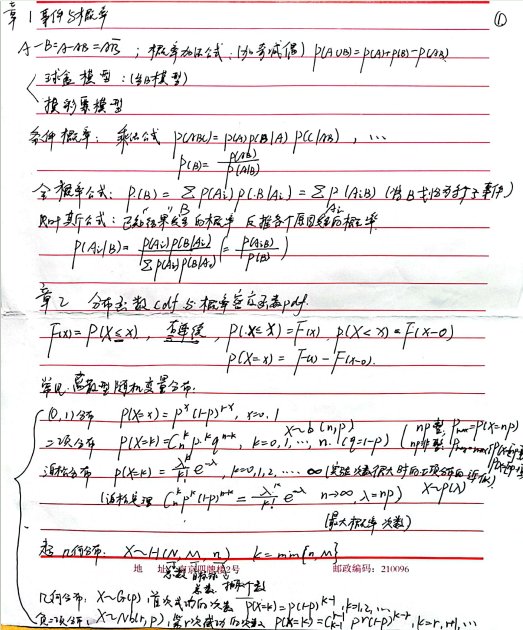 章1 事件与概率 ①
A-B=A-AB=AB̄ ; 概率加法公式:(加奇减偶) P(A∪B)=P(A)+P(B)-P(AB)
球盒模型:(占位模型)
摸彩票模型
条件概率: 乘法公式 P(ABC)=P(A)P(B|A)P(C|AB), …
P(B)= P(AB)/P(A|B)
全概率公式: P(B)=ΣP(Ai)P(B|Ai)=ΣP(AiB) (将B
贝叶斯公式: 已知"结果"发生的概率 反推各个原因发生的概率
B Ai
P(Ai|B)= P(Ai)P(B|Ai)/ΣP(Ai)P(B|Ai) (= P(AiB)/P(B))
章2 分布函数cdf与概率密度函数pdf.
F(x)=P(X≤x), 右连续, P(X≤x)=F(x), P(X<x)=F(x-0)
P(X=x)= F(x)-F(x-0).
常见离散型随机变量分布:
(0,1)分布 P(X=x)=pˣ(1-p)¹⁻ˣ, x=0.1
X~b(n,p)
二项分布 P(X=k)=Cₙᵏpᵏqⁿ⁻ᵏ, k=0,1,…,n. (q=1-p) (np整, Pmax=P(X=np)
np非整,
泊松分布 P(X=k)= λᵏ/k! e^-λ, k=0,1,2,…∞ (实验次数很大时的二项分布的近似)
X~p(λ)
(泊松定理 Cₙᵏpᵏ(1-p)ⁿ⁻ᵏ = λᵏ/k! e^-λ n→∞ λ=np)
(最大概率次数)
超几何分布: X~H(N,M,n) k=min{n,M}
地 址 南京四牌楼2号 邮政编码:210096
总数
几何分布: X~G(p), 首次成功的次数 P(X=k)=p(1-p)ᵏ⁻¹, k=1,2,…
负二项分布: X~Nb(r,p), 第r次成功的次数 P(X=k)=Cₖ₋₁ʳ⁻¹pʳ(1-p)ᵏ⁻ʳ, k=r,r+1,…